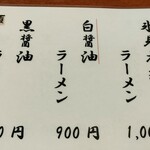 氷見
1,0
白醤油
ラーメン
900円
黒醤油
ラーメン
0円